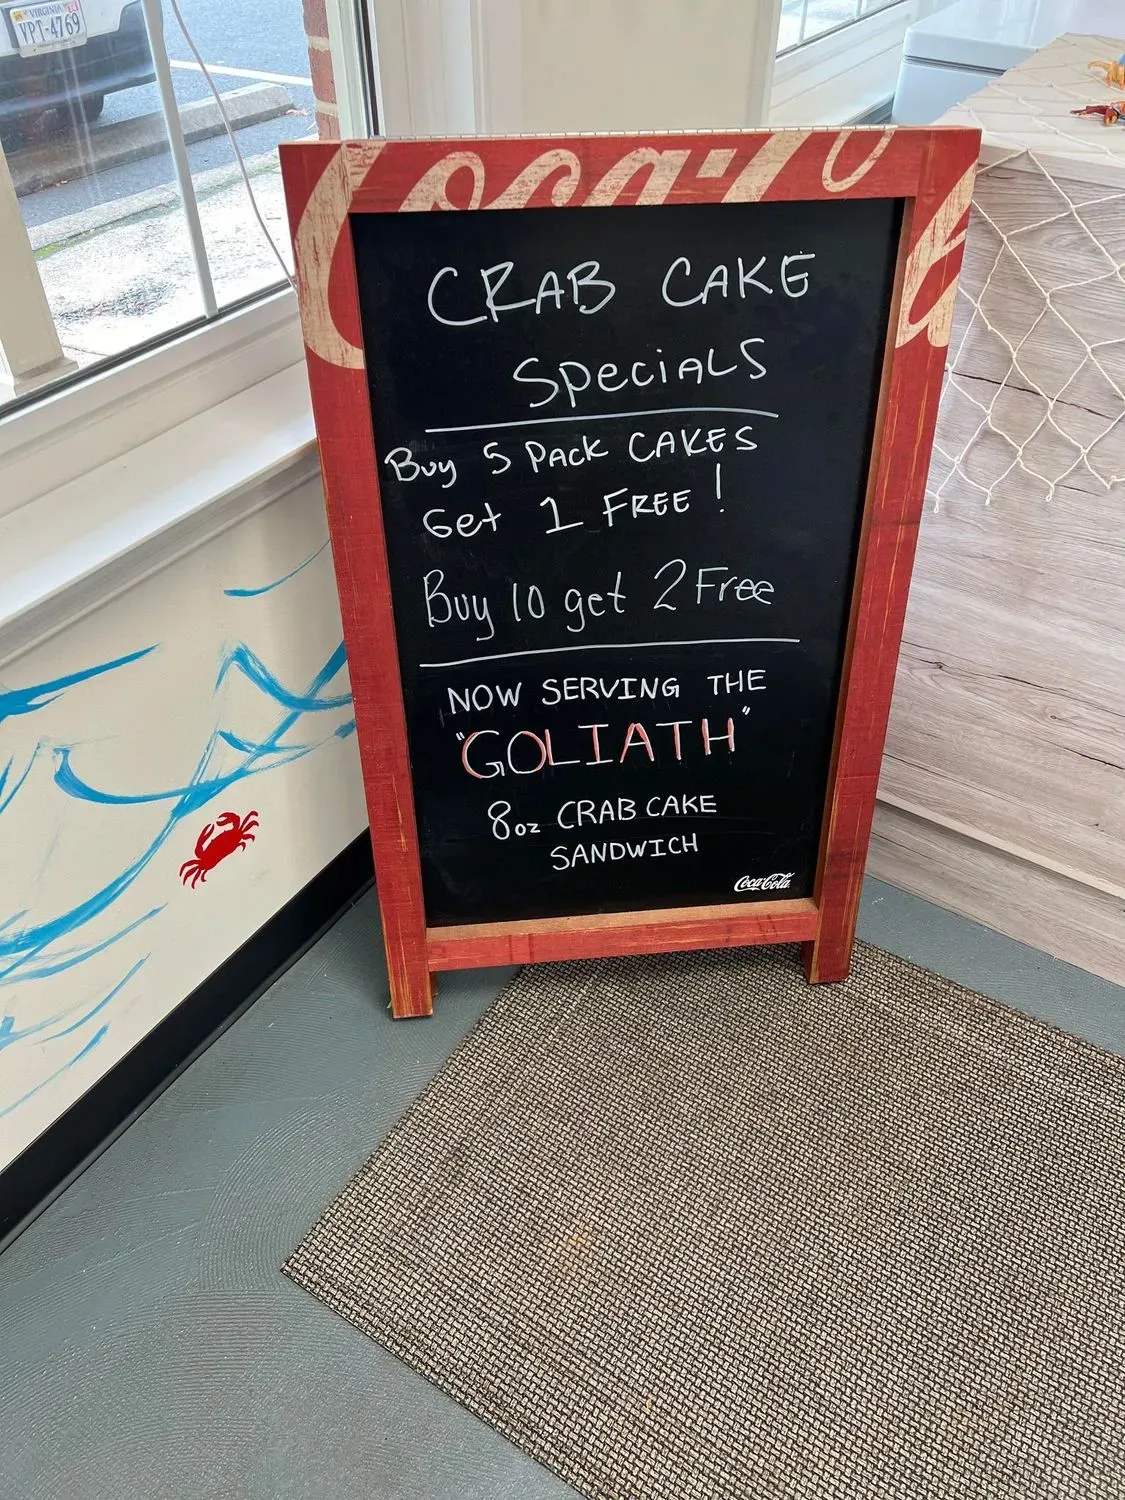 VIRGINIA
VPT-4769
Coca-Cola
CRAB CAKE
SpeciALS
Buy 5 Pack CAKES
Get 1 FREE!
Buy 10 get 2 Free
NOW SERVING THE
"GOLIATH"
8oz CRAB CAKE
SANDWICH
Coca-Cola